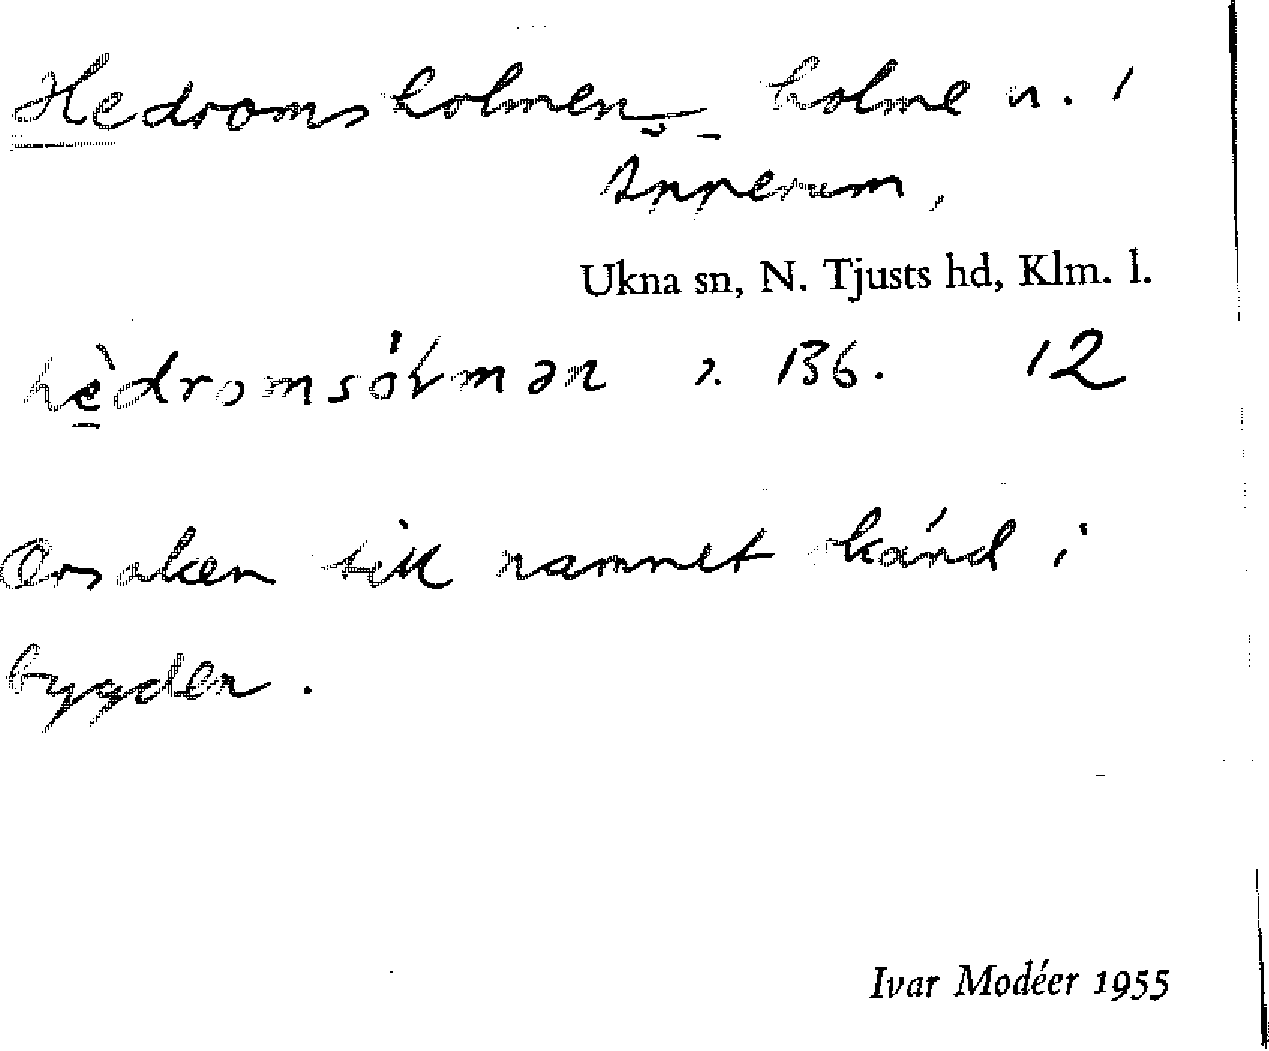 Hedromsholmen holme n. i
Ånnerum,
Ukna sn, N. Tjusts hd, Klm. l.
hèdromsóļmən 2. 136. 12
Orsaken till namnet känd i
bygden.
Ivar Modéer 1955